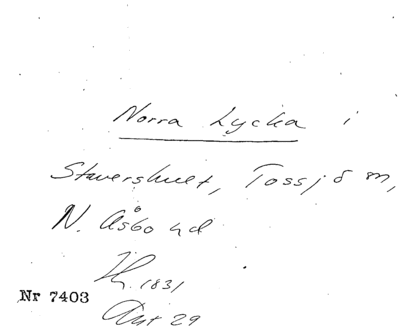 Norra Lycka i
Stavershult, Tossjö sn,
N. Åsbo hd
1831
Nr 7403
Akt 29